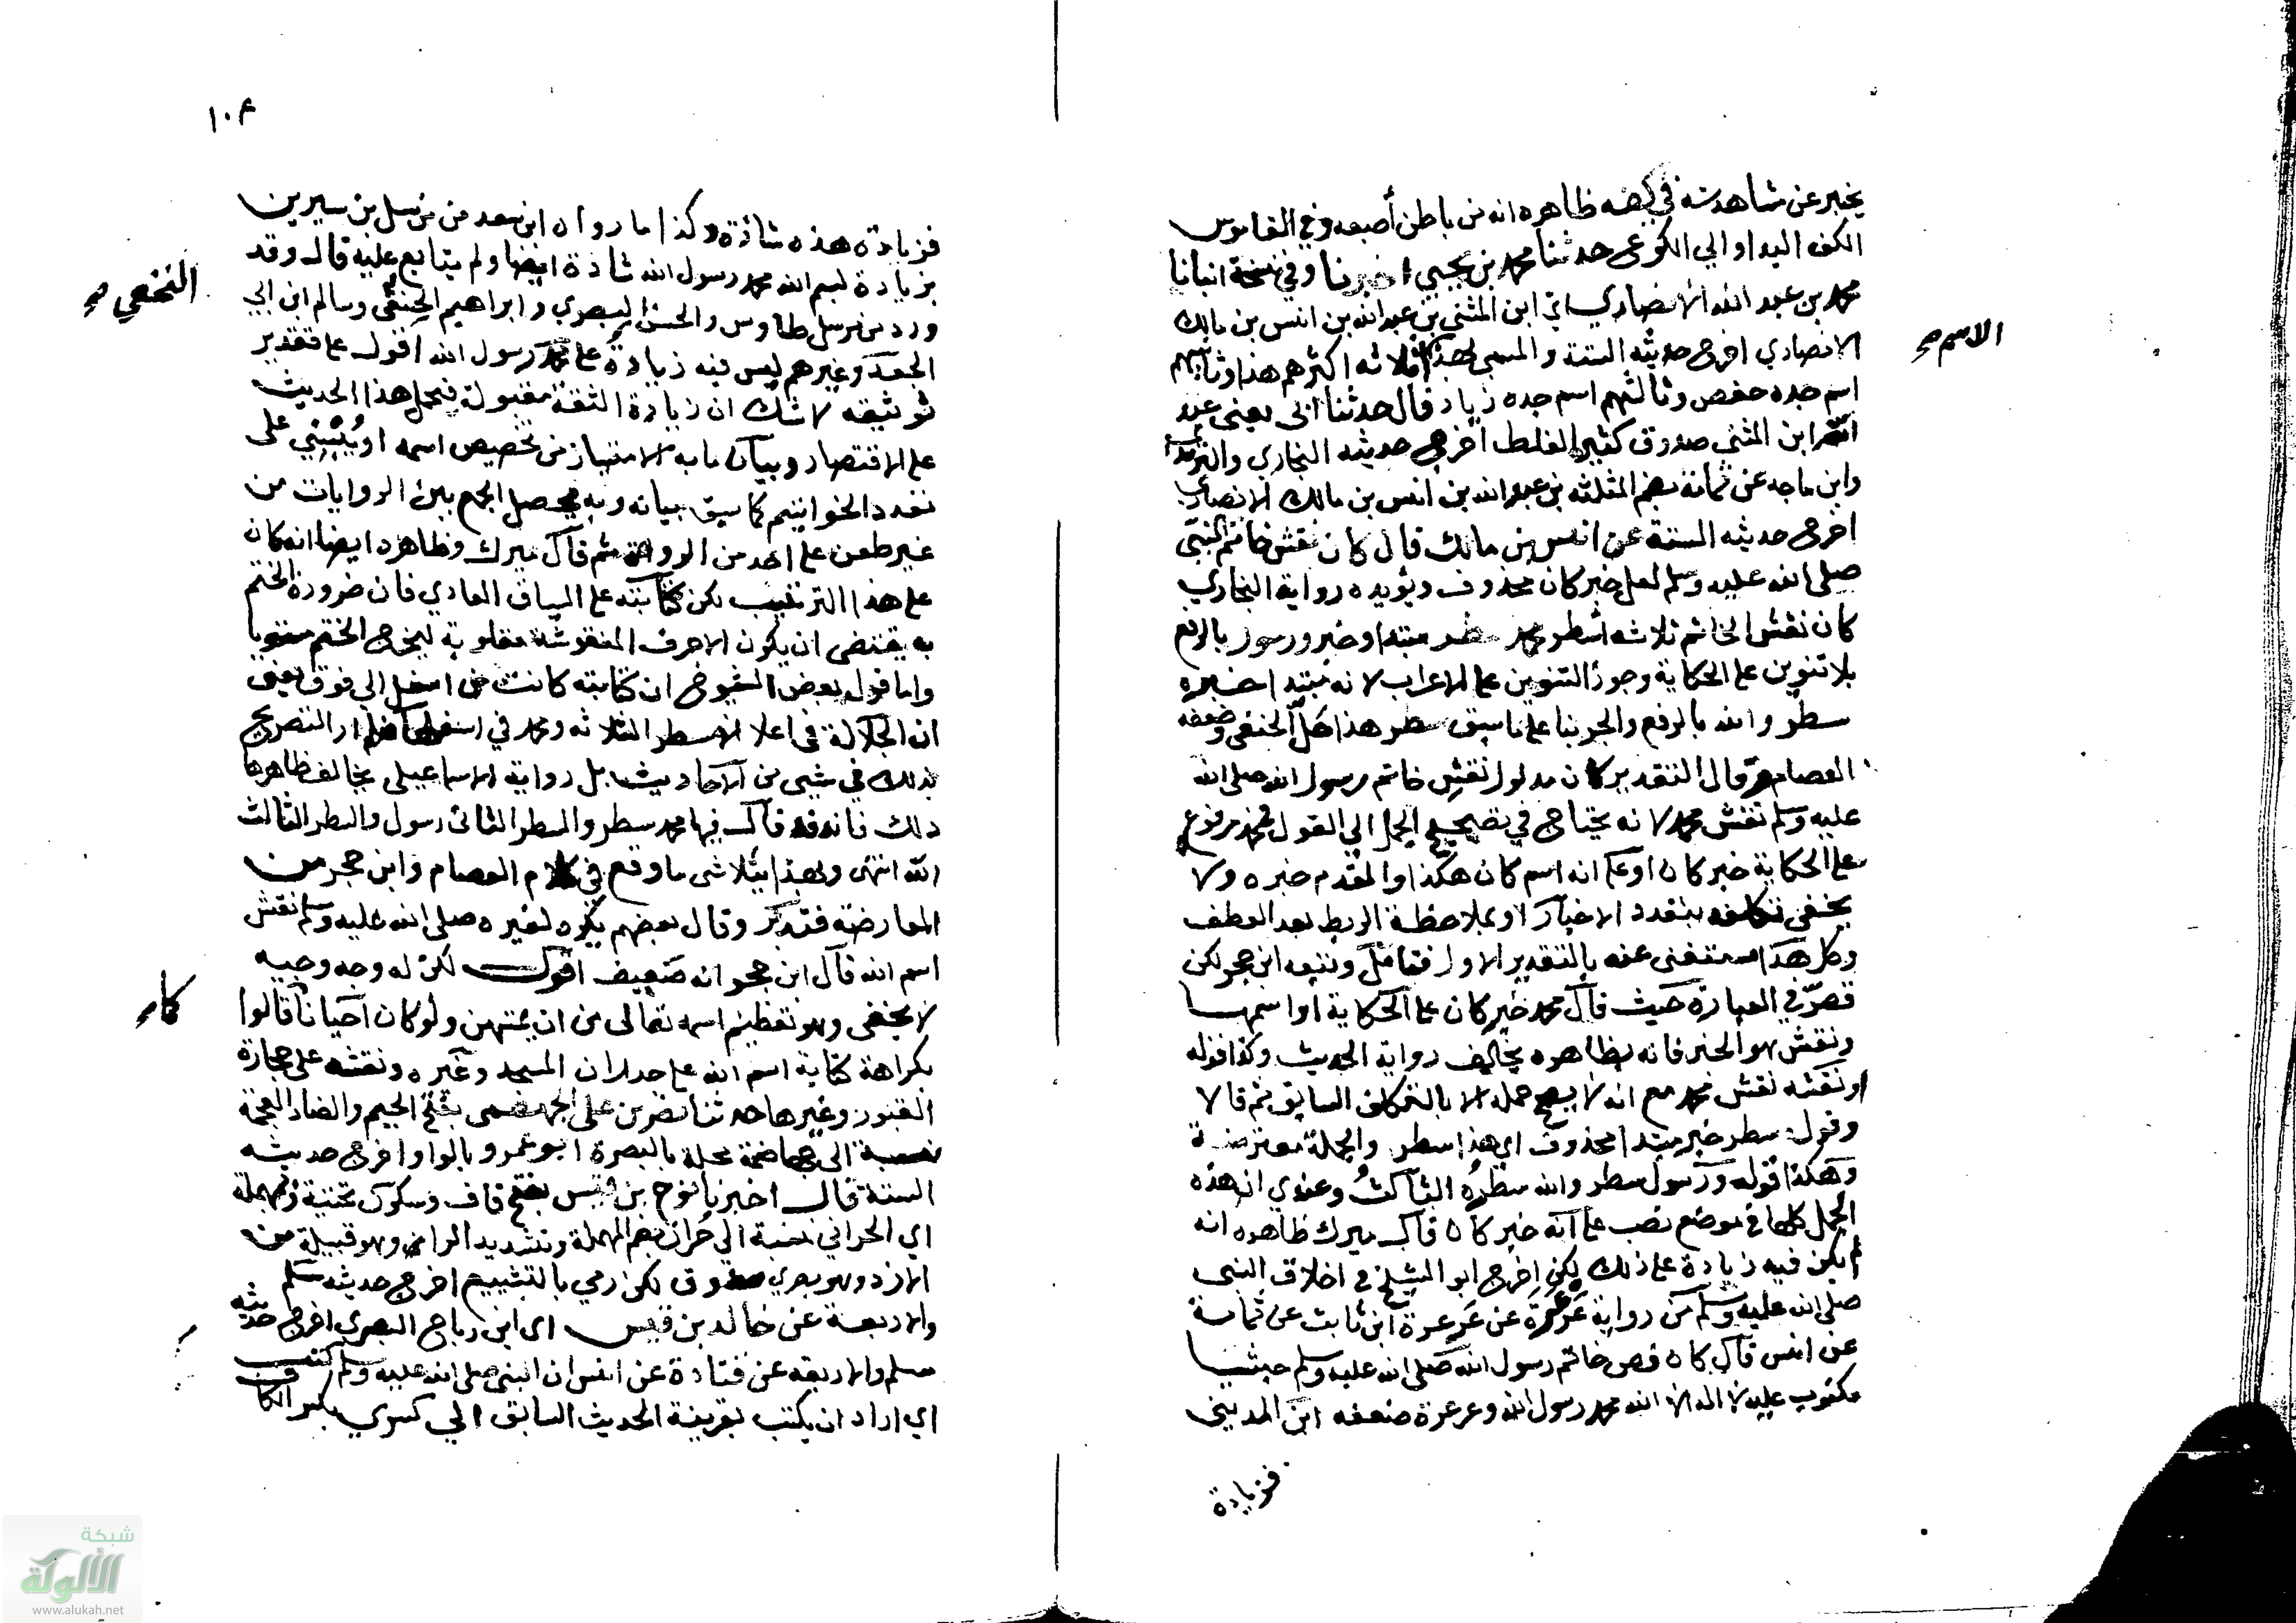 يخبر عن مشاهدته في كفه ظاهره انه من باطن أصبعه وفي القاموس
الكف اليد او الي الكوع حدثنا محمد بن يحيي اخبرنا وفي نسخة انبانا
محمد بن عبد الله الانصاري اي ابن المثني بن عبد الله بن انس بن مالك
الانصاري اخرج حديثه الستة والمسمي بهذا ثلاثه اكثرهم هذا وثانيهم
الاسم صح
اسم جده حفص وثالثهم اسم جده زياد قال حدثنا ابي يعني عبد
الله ابن المثني صدوق كثير الغلط اخرج حديثه البخاري والترمذي
وابن ماجه عن ثمامة بضم المثلثه بن عبد الله بن انس بن مالك الانصاري
اخرج حديثه الستة عن انس بن مالك قال كان نقش خاتم النبي
صلى الله عليه وسلم لعل خبر كان محذوف ويؤيده رواية البخاري
كان نقش الخاتم ثلاثه اسطر محمد سطر مبتدا وخبر ورسول بالرفع
بلا تنوين على الحكاية وجوز التنوين على الاعراب لانه مبتدا خبره
سطر والله بالرفع والجر بنا على ما سبق سطر هذا حل الحنفي وضعفه
العصام وقال التقدير كان مدلول نقش خاتم رسول الله صلى الله
عليه وسلم نقش محمد لانه يحتاج في تصحيح الحمل الي القول محمد مرفوع
على الحكاية خبر كان او على انه اسم كان هكذا والمقدم خبره ولا
يخفى تكلفه بتعدد الاخبار او بملاحظة الربط بعد العطف
وكل هذا مستغنى عنه بالتقدير الاول فتامل وتبعه ابن حجر لكن
قصر في العبارة حيث قال محمد خبر كان على الحكاية او اسمها
ونقش هو الخبر فانه بظاهره يخالف رواية الحديث وكذا قوله
او نقشه نقش محمد مع انه لا يصح حمله الا بالتكلف السابق ثم قالا
وقول سطر خبر مبتدا محذوف اي هذا سطر والجملة معترضة
وهكذا قوله ورسول سطر والله سطر الثالث وعندي ان هذه
الجمل كلها في موضع نصب على انه خبر كان قال ميرك ظاهره انه
لم يكن فيه زيادة على ذلك لكن اخرج ابو الشيخ في اخلاق النبي
صلى الله عليه وسلم من رواية عرعرة عن عرعرة ابن ثابت عن ثمامة
عن انس قال كان فص خاتم رسول الله صلى الله عليه وسلم حبشيا
مكتوب عليه لا اله الا الله محمد رسول الله وعرعرة ضعفه ابن المديني
فزيادة
١٠٤
فزيادة هذه شاذة وكذا ما رواه ابن سعد من مرسل بن سيرين
بزيادة بسم الله محمد رسول الله شاذة ايضا ولم يتابع عليه قال وقد
ورد من مرسل طاوس والحسن البصري وابراهيم الحنفي وسالم ابن ابي
النخعي صح
الجعد وغيرهم ليس فيه زيادة على محمد رسول الله اقول على تقدير
توثيقه لا شك ان زيادة الثقة مقبولة فيحمل هذا الحديث
على الاقتصار وبيان ما به الامتياز من تخصيص اسمه او يبتني على
تعدد الخواتيم كما سبق بيانه وبه يحصل الجمع بين الروايات من
غير طعن على احد من الرواة ثم قال ميرك وظاهره ايضا انه كان
على هذا الترتيب لكن كتابته على السياق العادي فان ضرورة الختم
به يقتضى ان يكون الاحرف المنقوشة مقلوبة ليخرج الختم مستويا
واما قول بعض الشيوخ ان كتابته كانت من اسفل الي فوق يعني
ان الجلالة في اعلا الاسطر الثلاثه ومحمد في اسفلها فلم ار التصريح
بذلك في شيء من الاحاديث بل رواية الاسماعيلي يخالف ظاهرها
ذلك فانه قد قال فيها محمد سطر والسطر الثاني رسول والسطر الثالث
الله انتهى وبهذا يتلاشى ما وقع في كلام العصام وابن حجر من
المعارضه فتدبر وقال بعضهم يكره لغيره صلى الله عليه وسلم نقش
اسم الله قال ابن حجر انه ضعيف اقول لكن له وجه وجيه
لا يخفى وهو تعظيم اسمه تعالى من ان يمتهن ولو كان احيانا قالوا
كما صح
بكراهة كتابة اسم الله على جدران المسجد وغيره ونقشه على حجارة
القبور وغيرها حدثنا نصر بن علي الجهضمي بفتح الجيم والضاد المعجمة
نسبة الى جهاضمة محلة بالبصرة ابو عمرو بالواو اخرج حديثه
الستة قال اخبرنا نوح بن قيس بفتح قاف وسكون تحتية ومهملة
اي الحراني نسبة الي حران بضم المهملة وتشديد الراء وهو قبيلة من
الازد وهو بصري صدوق لكن رمي بالتشييع اخرج حديثه مسلم
والاربعة عن خالد بن قيس اي ابن رباح البصري اخرج حديثه
مسلم والاربعه عن قتادة عن انس ان النبي صلى الله عليه وسلم كتب
اي اراد ان يكتب بقرينة الحديث السابق الي كسري بكسر الكاف
شبكة
الألوكة
www.alukah.net